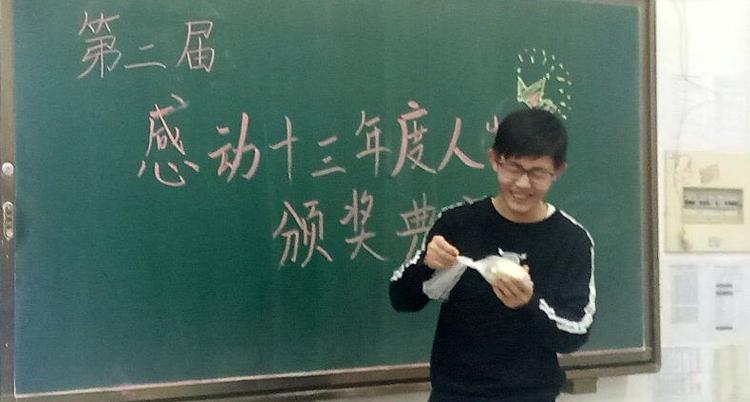 第二届
感动十三年度人
颁奖典